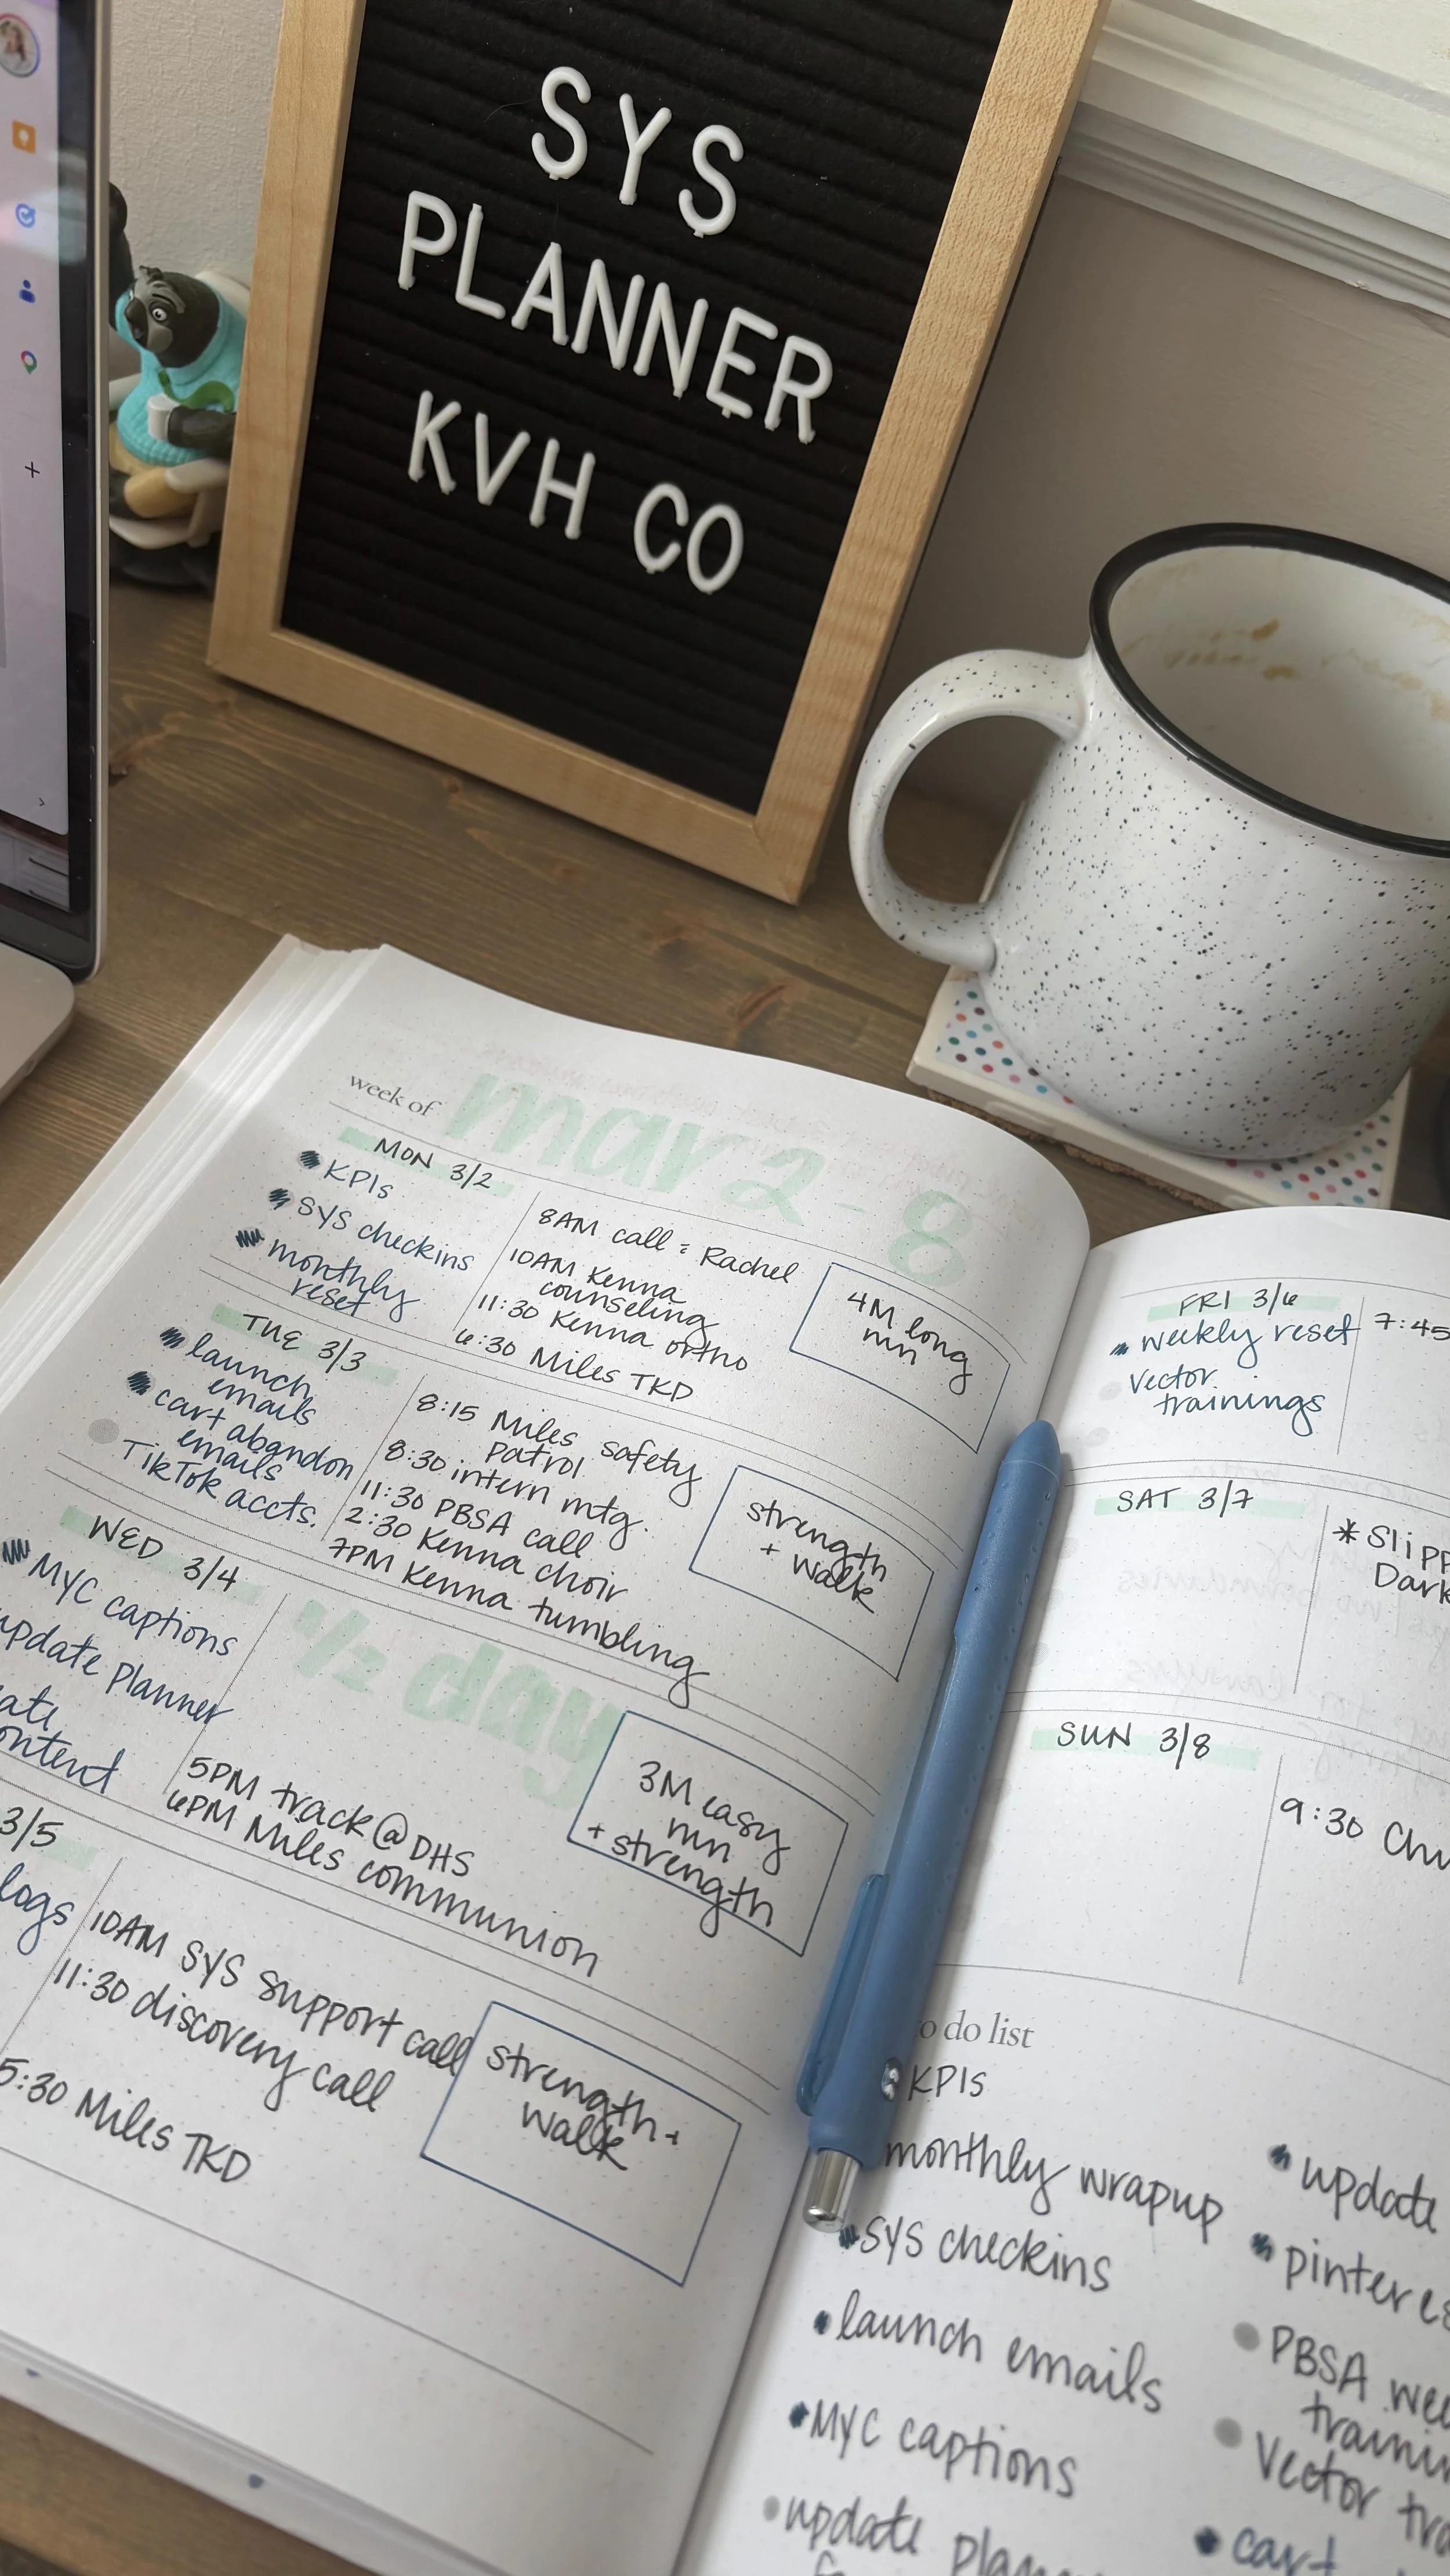 SYS
PLANNER
KVH CO
week of mar 2-8
MON 3/2
KPIs
SYS checkins
monthly
reset
8AM call: Rachel
10AM Kenna
counseling
11:30 Kenna ortho
6:30 Miles TKD
4M long
run
TUE 3/3
launch
emails
cart abandon
emails
TikTok accts.
8:15 Miles safety
patrol
8:30 intern mtg.
11:30 PBSA call
2:30 Kenna choir
7PM Kenna tumbling
strength
+ walk
WED 3/4
MYC captions
update Planner
ate
ontent
1/2 day
5PM track @ DHS
6PM Miles communion
3M easy
run
+ strength
3/5
logs
10AM SYS support call
11:30 discovery call
5:30 Miles TKD
strength +
walk
FRI 3/6
weekly reset
vector
trainings
7:45
SAT 3/7
* Slipp
Dark
SUN 3/8
9:30 Chu
o do list
KPIs
monthly wrapup
SYS checkins
launch emails
MYC captions
update plan
update
pinteres
PBSA wee
trainin
Vector tra
cart